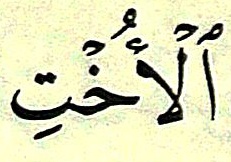 ٱلۡأُخۡتِ